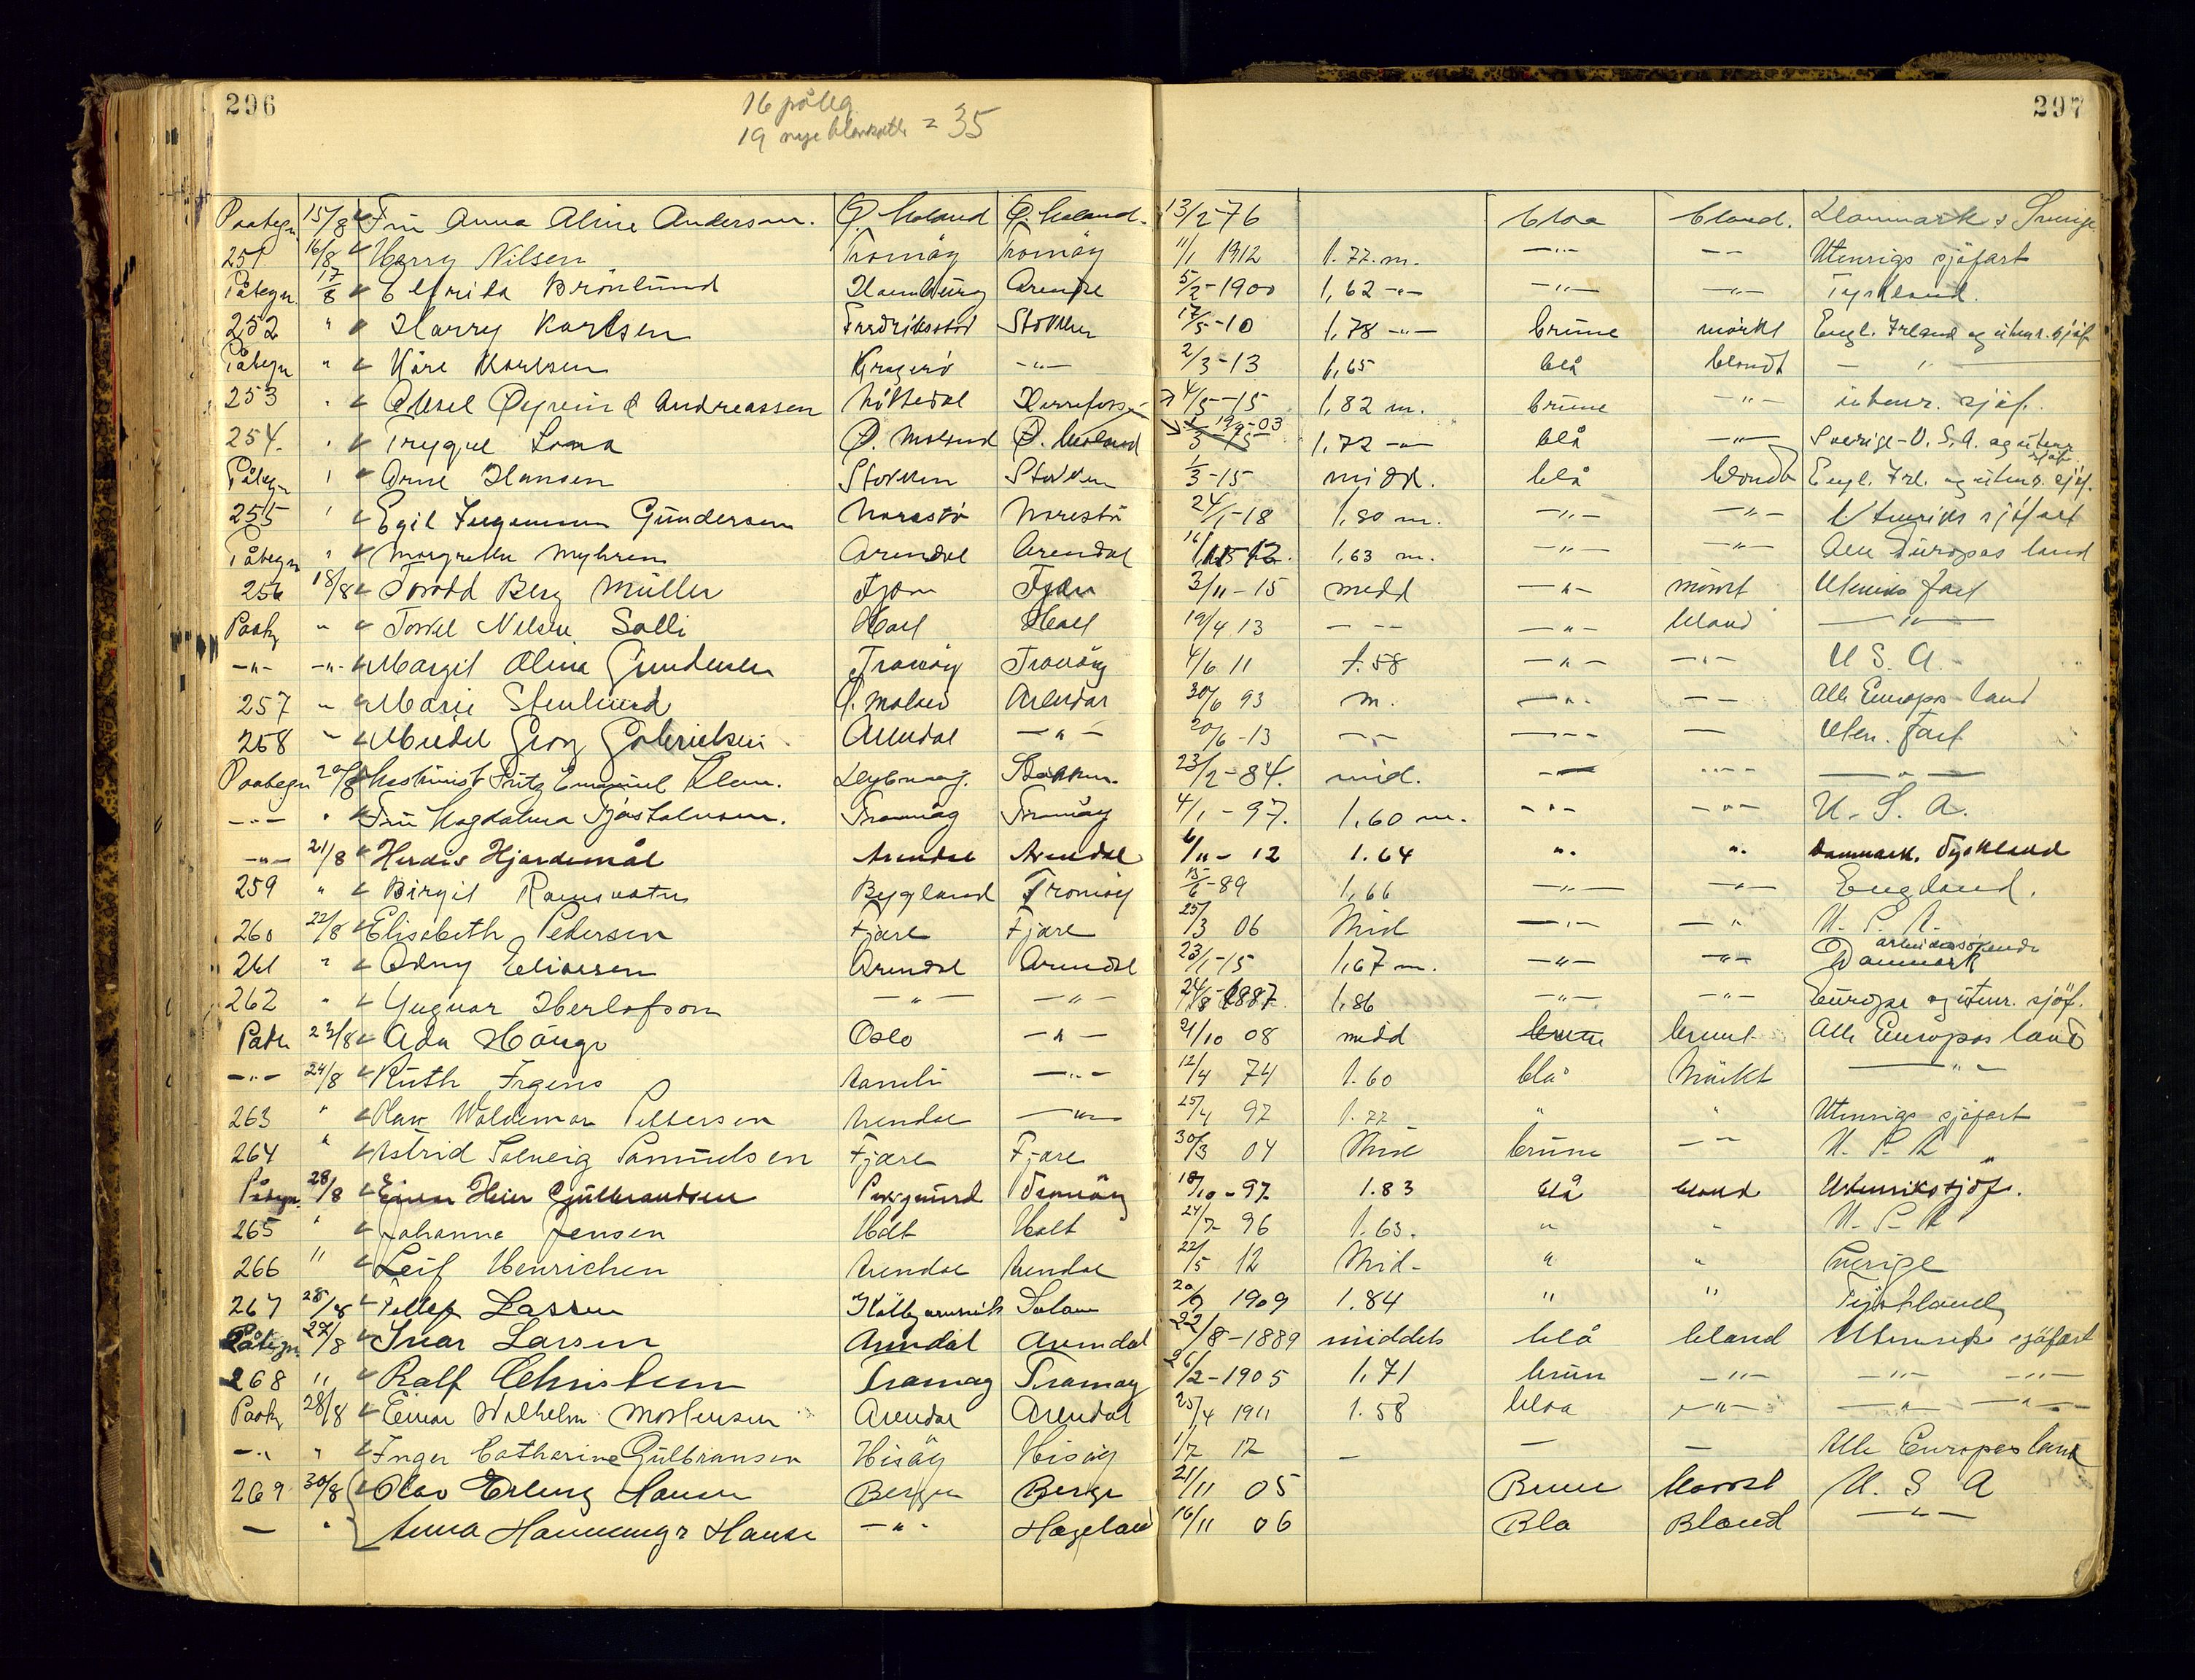 296
297
16 påteg.
19 nye = 35
Paategn. 15/8 Fru Anna Aline Andersen. Ø. Moland Ø. Moland. 13/2-76 blaa blond. Danmark & Sverige
251 16/8 Harry Nilsen Tromöy Tromöy 11/1 1912 1.72.m. —"— — — Utenrigs sjöfart
Påtegn. 17/8 Elfrida Brönlund Hamburg Arendal 5/2-1900 1,62 -"- —"— —"— Tyskland.
252 " Harry Karlsen Fredrikstad Stokken 17/5-10 1,78 -"- brune mörkt Engl. Irland og utenr. sjöf.
Påtegn " Kåre Karlsen Kragerö —"— 2/3-13 1,65 blå blondt — " —
253 " Aksel Øyvind Andreassen 4/5-15 1,82 m. brune —"— utenr. sjöf.
254. " Trygve Ø. Moland Ø. Moland 1,72 -"- blå —"— Sverige-U.S.A. og utenr. sjöf.
Påtegn " Arne Hansen Stokken Stokken 1/3-15 midd. blå blondt Engl. Irl. og utenr. sjöf.
255 " Egil Ingemann Gundersen Narestö Narestö 24/1-18 1,80 m. —"— —"— Utenriks sjöfart
Påtegn " Margrethe Myhren Arendal Arendal 1,63 m. —"— —"— Alle Europas land
256 18/8 Torodd Berg Müller 3/11-15 midd —"— mörkt Utenriks fart
Paateg " Torvel Nilsen Solli 19/4 13 — — —"— blond —"—
—"— —"— Margit Olina Gundersen Tromöy Tromöy 4/6 11 1.58 —"— —"— U S. A.
257 " Marie Stenlund Ø. Moland Arendal 30/6 93 m. —"— — — Alle Europas land
258 " Georg Gabrielsen Arendal —"— 20/6-13 — — — — — — Uten. fart
Paategn 20/8 Maskinist Fritz Emanuel Stokken. 23/2-84. mid. —"— —"— —"—
—"— " Fru Magdalena Tromöy Tromöy 4/1-97. 1,60 m. —"— —"— U. S. A.
—"— 21/8 Herdis Hjardemål Arendal Arendal 6/11-12 1.64 ". ". Danmark. Tyskland
259 " Birgit Ramsvatn Bygland Tromöy 15/6-89 1,66 —"— —"— England.
260 22/8 Elisabeth Pedersen Fjære Fjære 25/3 06 Mid —"— — " U. S. A.
261 " Odny Eliassen Arendal Arendal 23/1-15 1,67 m. —"— —"— arbeidssökende Danmark
262 " Yngvar Herlofson —"— —"— 1887. 1,86 —"— —"— Europa og utenr. sjöf.
Patn 23/8 Ada Hauge Oslo —"— 21/10 08 midd brune brunt Alle Europas land
—"— 24/8 Ruth Irgens —"— 12/4 74 1.60 blå Mörkt —"—
263 " Olav Waldemar Pettersen Arendal —"— 25/4 97 1.77 " " Utenrigs sjöfart
264 " Astrid Solveig Samuelsen Fjære Fjære 30/3 04 Mid brune — — U. S. A
Påtegn. 28/8 Einar Heier Gulbrandsen Porsgrund Tromöy 18/10-97 1.83 blå blond Utenriks sjöf.
265 " Johanna Jensen Holt Holt 24/7 96 1.63. " " U. S. A
266 " Leif Henrichsen Arendal Arendal 22/5 12 Mid- " " Sverige
267 28/8 Lassen 1909 1.84 " " Tyskland
Påtegn. 27/8 Ivar Larsen Arendal Arendal 22/8-1889 middels blå blond Utenriks sjöfart
268 " Ralf Christensen Tromøy Tromøy 26/2-1905 1.71 brun —"— —"— —"—
Paateg 28/8 Einar Wilhelm Mortensen Arendal Arendal 25/4 1911 1.58 blaa —"— —"— —"—
—" " Inger Catharine Gulbransen Hisöy Hisöy 1/7 12 — — — Alle Europas land
269 30/8 Olav Erling Hansen Bergen Bergen 21/11 05 Brune Mörkt U. S A
— " Anna Hansen —"— Hægeland 16/11 06 Bla Blond —"—